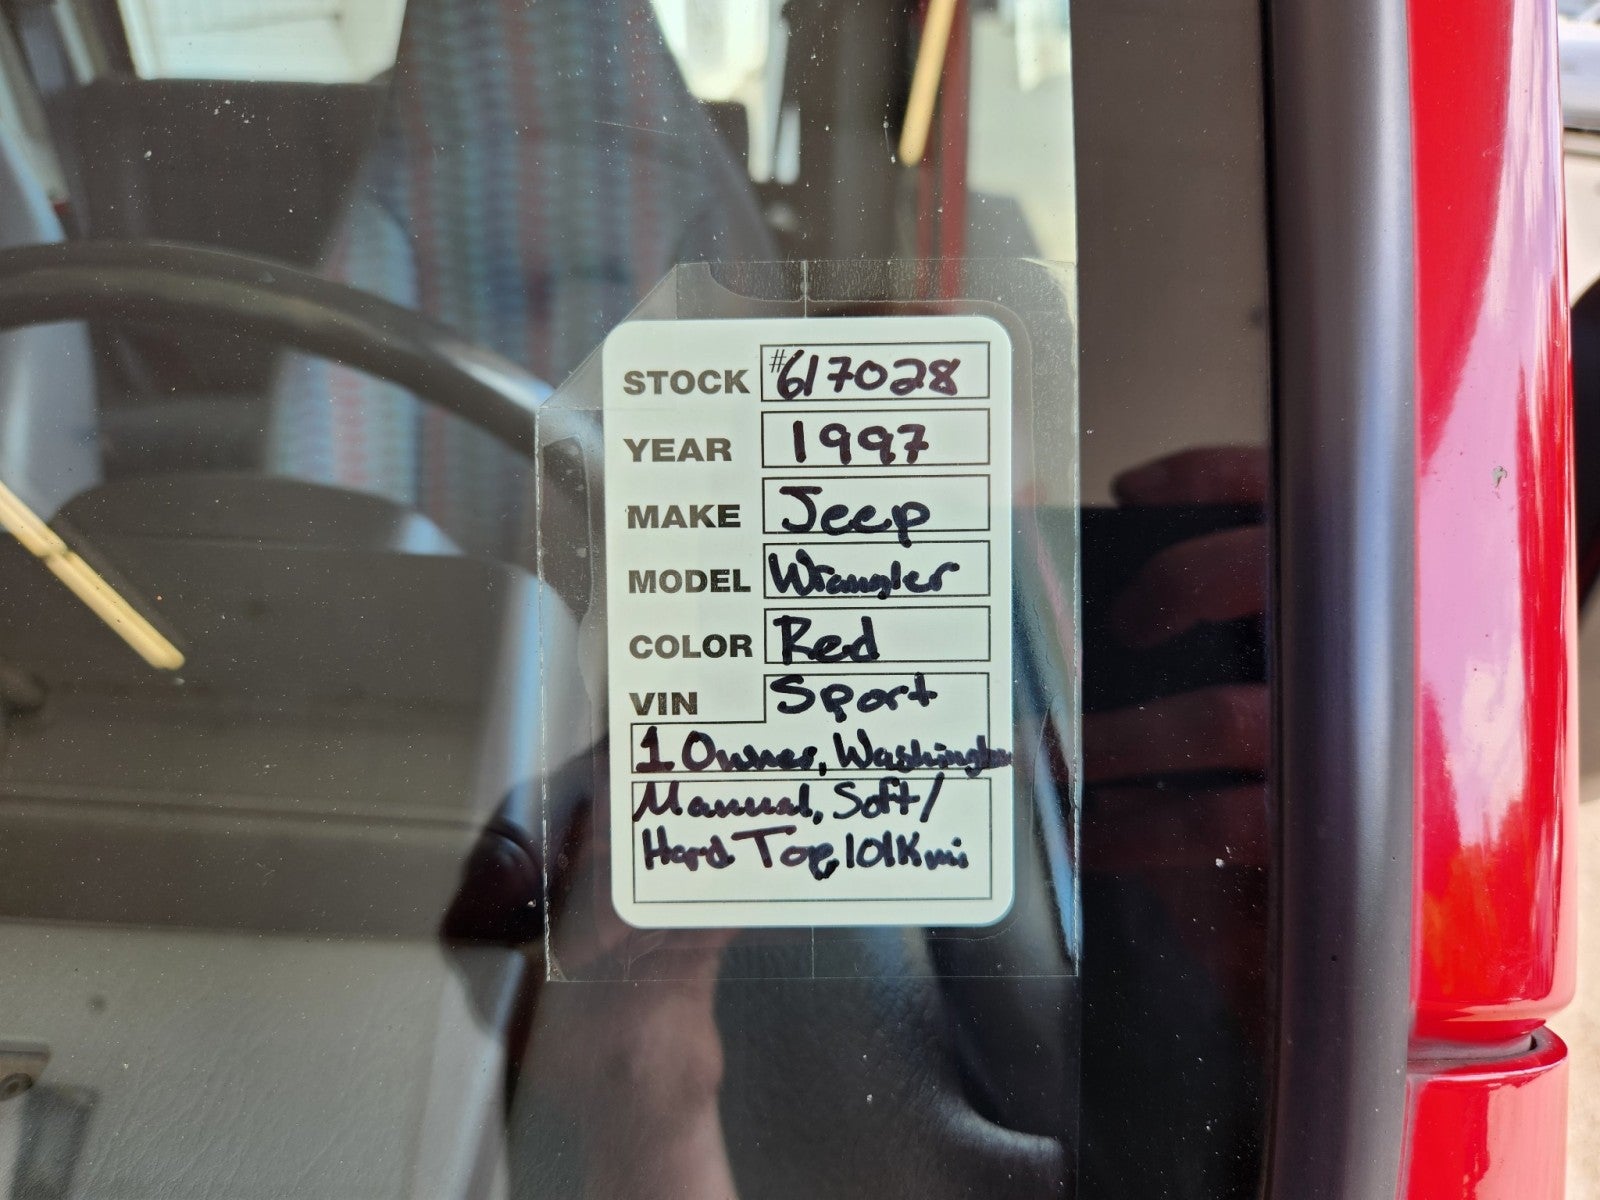 STOCK #617028
YEAR 1997
MAKE Jeep
MODEL Wrangler
COLOR Red
VIN Sport
1 Owner, Washington
Manual, Soft/
Hard Top, 101K mi